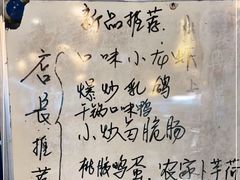 新品推荐
店长推荐
口味小龙虾
爆炒乳鸽
干锅口味鸭
小炒苗脆肠
桃胶鸡蛋. 农家小芋荷